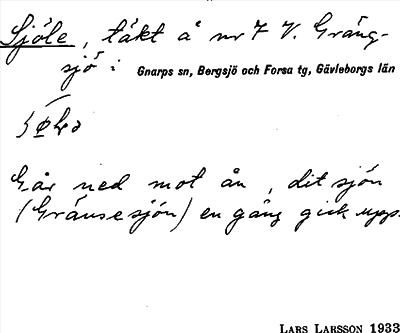 Sjöle, täkt å nr 7 V. Gräng-
sjö i Gnarps sn, Bergsjö och Forsa tg, Gävleborgs län
Går ned mot ån, dit sjön
(Gränsesjön) en gång gick upp.
LARS LARSSON 1933